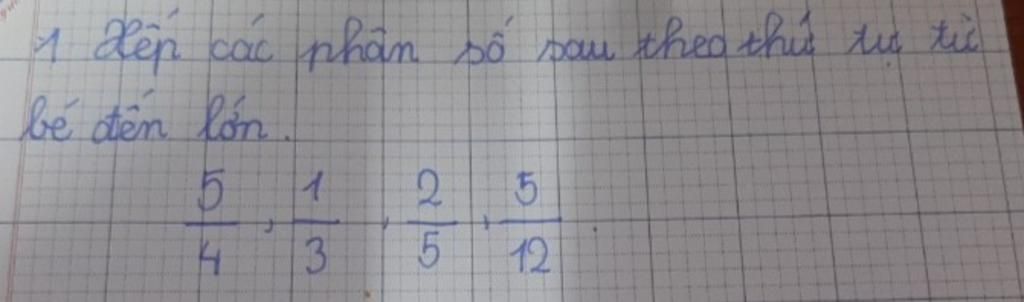 1 Xếp các phân số sau theo thứ tự từ
bé đến lớn.
5/4, 1/3, 2/5, 5/12.